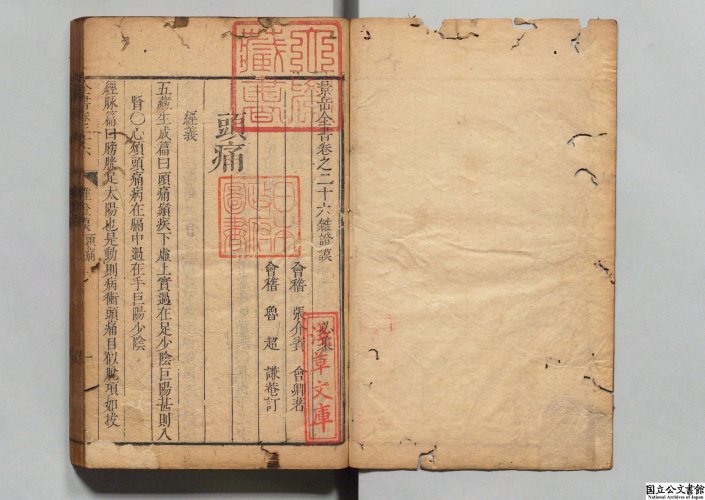 景岳全書卷之二十六雜證謨
會稽 張介賓 會卿著
會稽 魯超 謙菴訂
頭痛
經義
五藏生成篇曰頭痛巓疾下虛上實過在足少陰巨陽甚則入
腎〇心煩頭痛病在膈中過在手巨陽少陰
經脉篇曰膀胱足太陽也是動則病衝頭痛目似脫項如拔
頭痛
一
淺草文庫
日本政府圖書
国立公文書館
National Archives of Japan